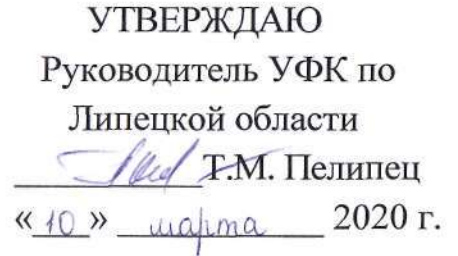 УТВЕРЖДАЮ
Руководитель УФК по
Липецкой области
Т.М. Пелипец
«10» марта 2020 г.